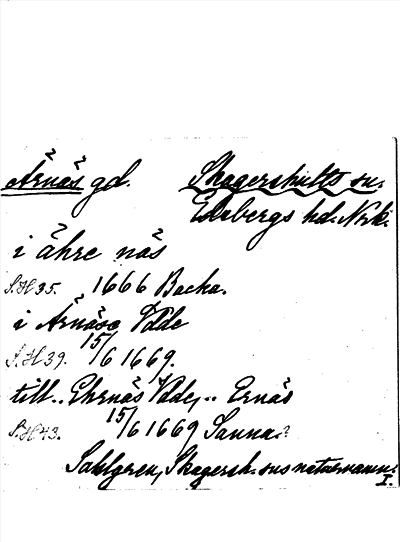 Årnäs gd. Skagershults sn.
Edsbergs hd. Nrk.
i åhre näs
S.H 35. 1666 Backa.
i Årnäse Udde
S.H 39. 15/6 1669.
till.. Ehrnäs Udde, .. Ernäs
S.H 43. 15/6 1669 Sanna?
Sahlgren, Skagersh. sns naturnamn.
I.